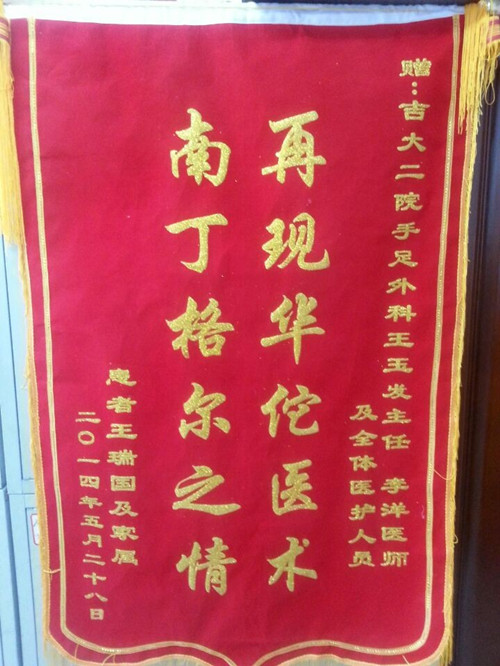 赠:吉大二院手足外科王玉发主任 李洋医师
及全体医护人员
再现华佗医术
南丁格尔之情
患者王瑞国及家属
二〇一四年五月二十八日